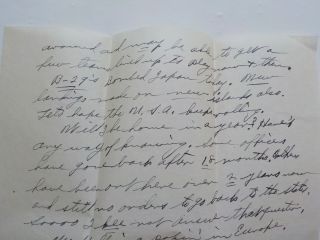 around and may be able to get a
few teams lined up to play now & then.
B-29's bombed Japan today. New
landings made on new islands also.
Let's hope the U.S.A. keeps rolling.
Will I be home in a year? Haven't
any way of knowing. Some officers
have gone back after 18 months. Others
have been out here over 2 years now
and still no orders to go back to the states,
Soooo I can not answer that question.
in Europe.